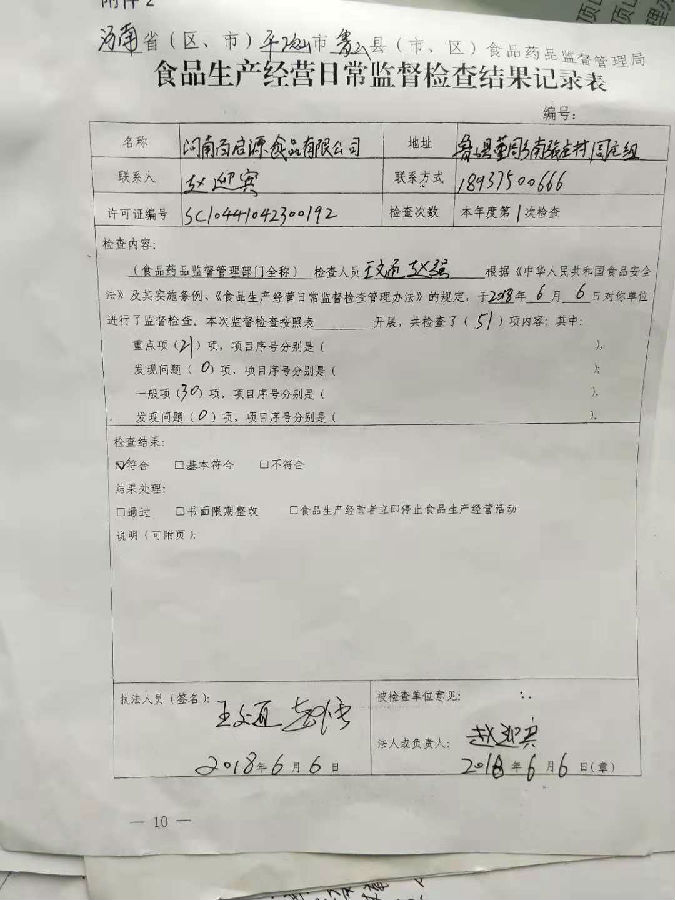 附件2
河南省(区、市)平顶山市鲁山县(市、区)食品药品监督管理局
食品生产经营日常监督检查结果记录表
编号:
名称 河南 启源食品有限公司 地址 鲁山县董周乡南张庄村闫庄组
联系人 赵迎宾 联系方式 18937500666
许可证编号 SC10441042300192 检查次数 本年度第1次检查
检查内容:
(食品药品监督管理部门全称) 检查人员 王文通 赵强 根据《中华人民共和国食品安全
法》及其实施条例、《食品生产经营日常监督检查管理办法》的规定,于2018年6月6日对你单位
进行了监督检查。本次监督检查按照表 开展,共检查了(51)项内容;其中:
重点项(21)项,项目序号分别是( ),
发现问题(0)项,项目序号分别是( ),
一般项(30)项,项目序号分别是( ),
发现问题(0)项,项目序号分别是( ),
检查结果:
☑符合 □基本符合 □不符合
结果处理:
□通过 □书面限期整改 □食品生产经营者立即停止食品生产经营活动
说明(可附页):
执法人员(签名): 王文通 被检查单位意见:
法人或负责人: 赵迎宾
2018年6月6日 2018年6月6日(章)
— 10 —